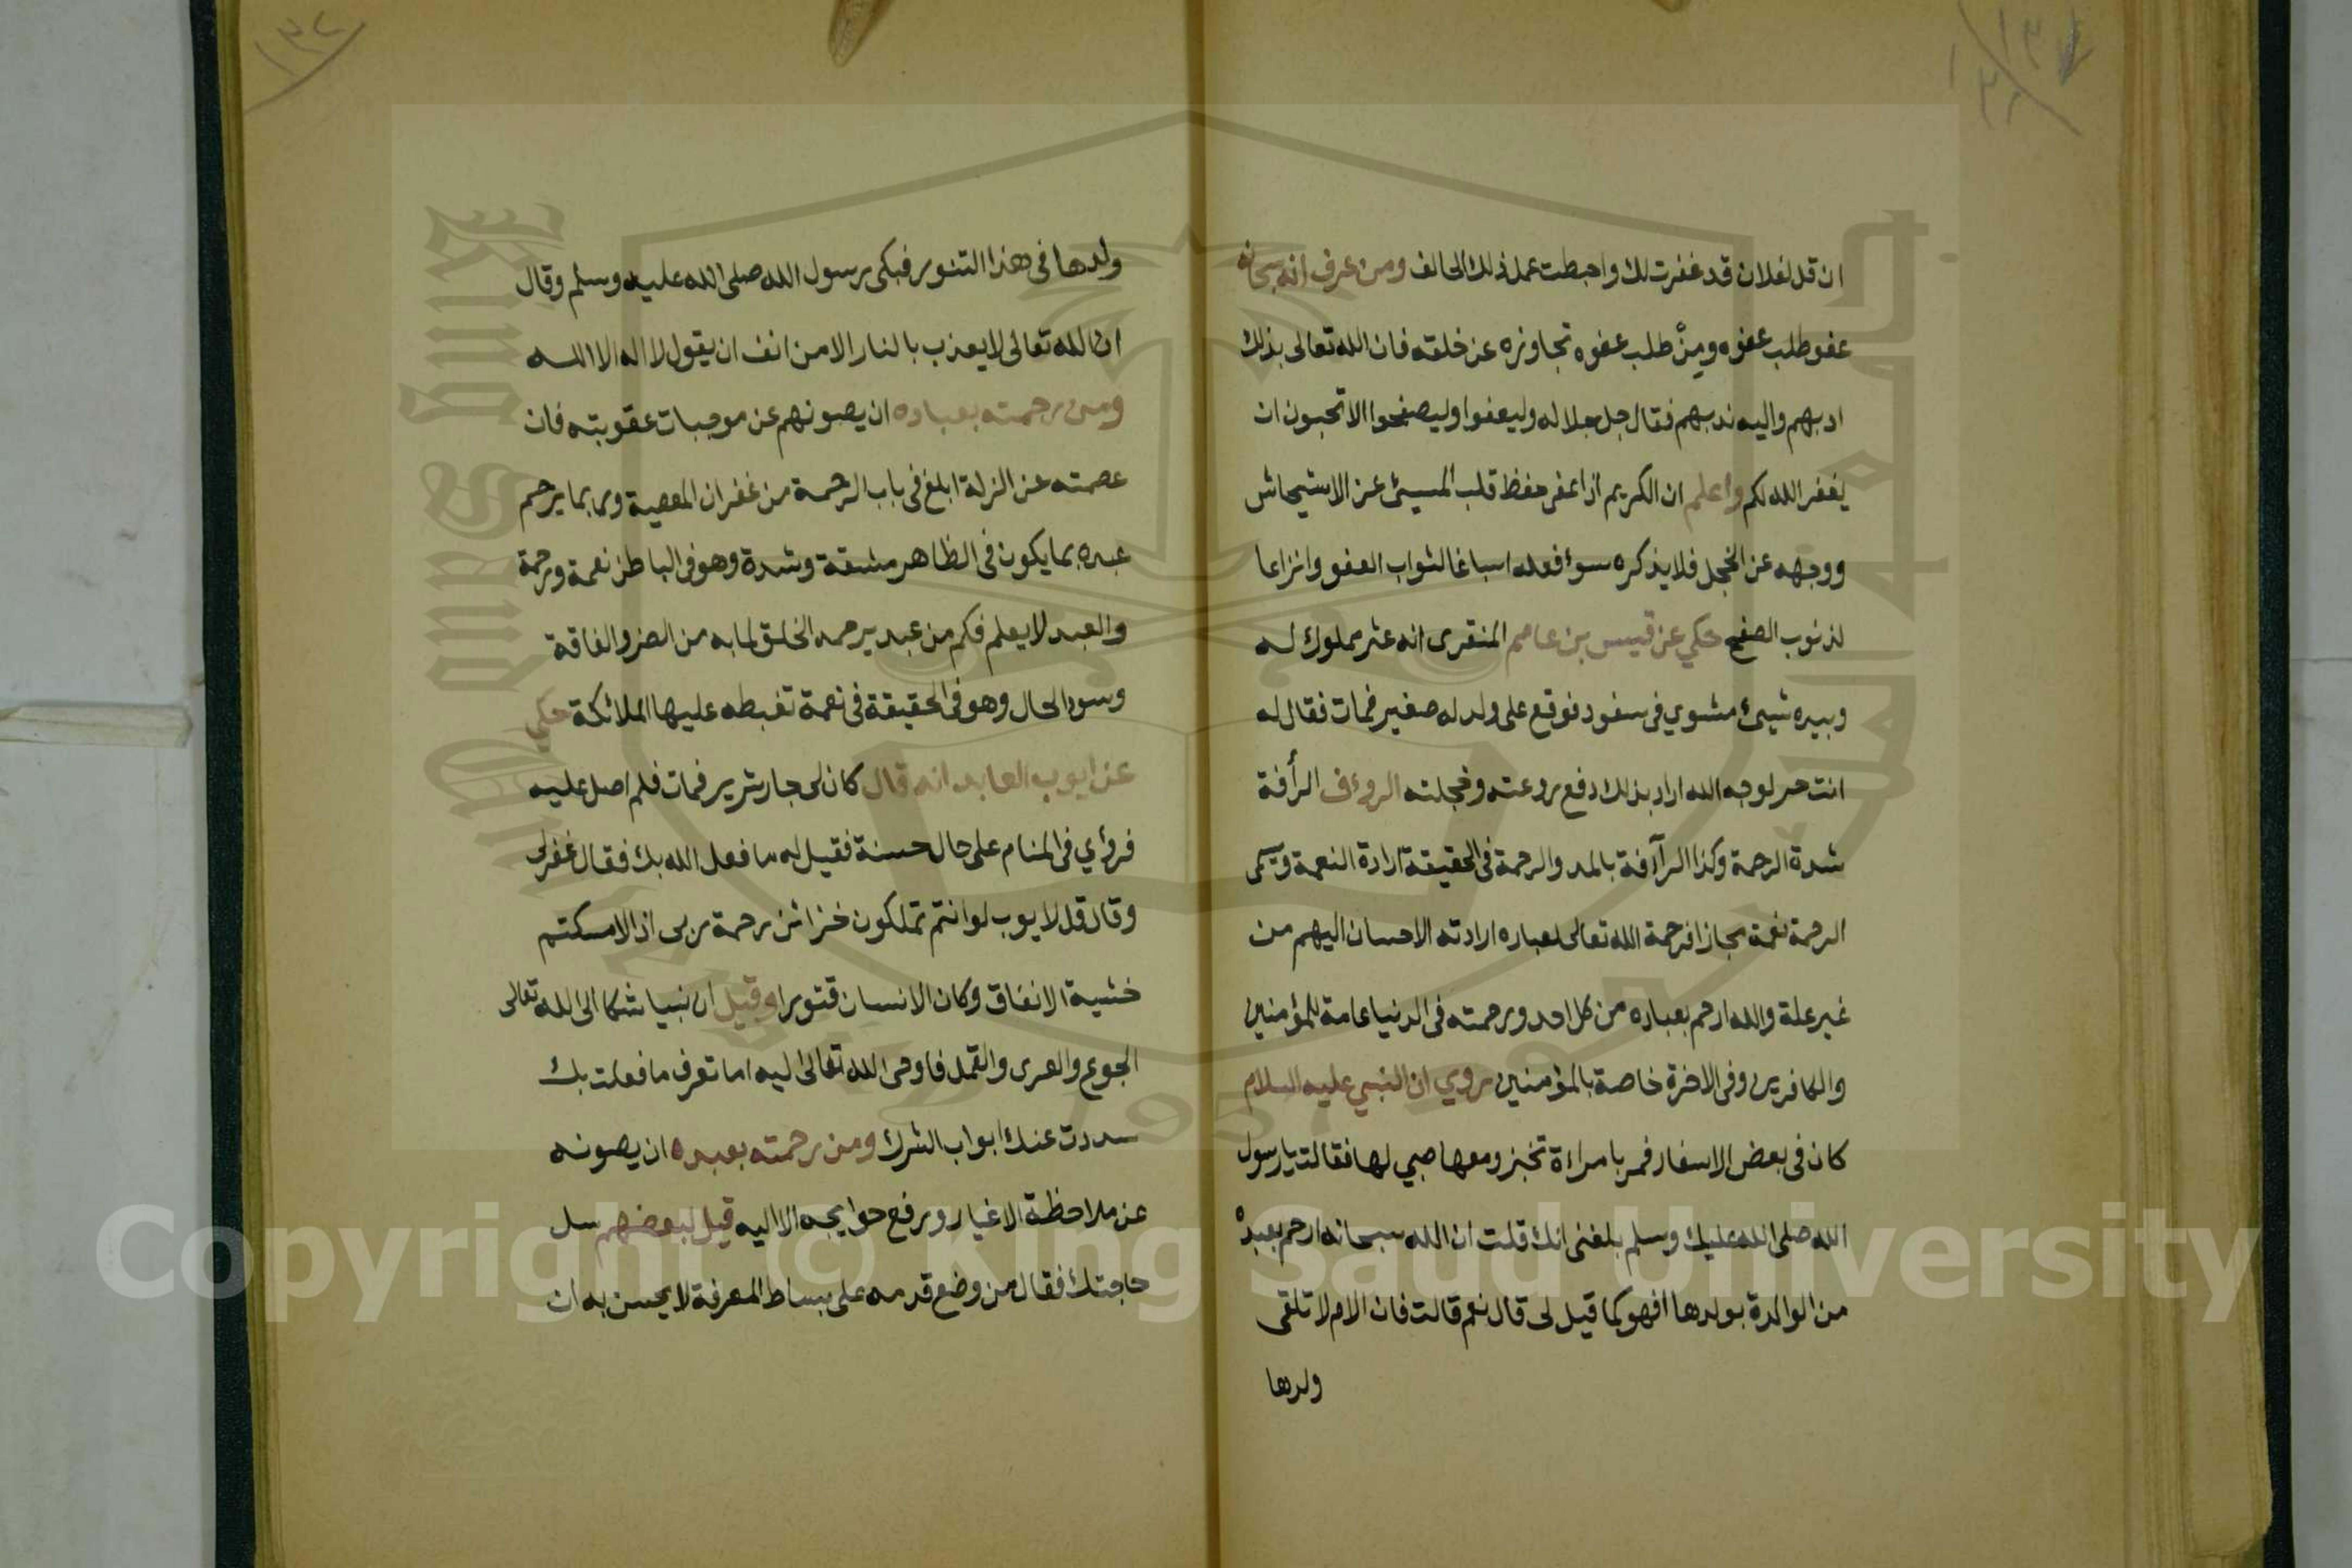 ان قل لفلان قد غفرت لك واحبطت عمل ذلك الحالف ومن عرف انه سبحانه
عفو طلب عفوه ومن طلب عفوه تجاوز عن خلقه فان الله تعالى بذلك
ادبهم واليه ندبهم فقال جل جلاله وليعفوا وليصفحوا الا تحبون ان
يغفر الله لكم واعلم ان الكريم اذا غفر حفظ قلب المسيئ عن الاستيحاش
ووجهه عن الخجل فلا يذكره سوٴ فعله اسباغا لثواب العفو وانزاعا
لذنوب الصفح حكي عن قيس بن عاصم المنقرى انه عثر مملوك له
وبيده شيئ مشوي في سفود فوقع على ولد له صغير فمات فقال له
انت حر لوجه الله اراد بذلك دفع روعته وخجلته الروٴف الرأفة
شدة الرحمة وكذا الرآفة بالمد والرحمة في الحقيقة ارادة النعمة وتسمى
الرحمة نعمة مجازا فرحمة الله تعالى لعباده ارادته الاحسان اليهم من
غير علة والله ارحم بعباده من كل احد ورحمته فى الدنيا عامة للمؤمنين
والكافرين وفى الاخرة خاصة بالمؤمنين روي ان النبي عليه السلام
كان فى بعض الاسفار فمر بامراءة تخبز ومعها صبي لها فقالت يا رسول
الله صلى الله عليك وسلم بلغنى انك قلت ان الله سبحانه ارحم بعبده
من الوالدة بولدها افهو كما قيل لى قال نعم قالت فان الام لا تلقى
ولدها
ولدها فى هذا التنور فبكى رسول الله صلى الله عليه وسلم وقال
ان الله تعالى لا يعذب بالنار الا من انف ان يقول لا اله الا الله
ومن رحمته بعباده ان يصونهم عن موجبات عقوبته فان
عصمته عن الزلة ابلغ فى باب الرحمة من غفران المعصية وربما يرحم
عبده بما يكون فى الظاهر مشقة وشدة وهو فى الباطن نعمة ورحمة
والعبد لا يعلم فكم من عبد يرحمه الخلق لما به من الضر والفاقة
وسوء الحال وهو فى الحقيقة فى نعمة تغبطه عليها الملائكة حكي
عن ايوب العابد انه قال كان لى جار شرير فمات فلم اصل عليه
فرؤي فى المنام على حال حسنة فقيل له ما فعل الله بك فقال غفر لى
وقال قل لايوب لو انتم تملكون خزائن رحمة ربى اذا لامسكتم
خشية الانفاق وكان الانسان قتورا وقيل ان نبيا شكا الى الله تعالى
الجوع والعرى والقمل فاوحى الله تعالى اليه اما تعرف ما فعلت بك
سددت عنك ابواب الشرك ومن رحمته بعبده ان يصونه
عن ملاحظة الاغيار ورفع حوايجه الا اليه قيل لبعضهم سل
حاجتك فقال من وضع قدمه على بساط المعرفة لا يحسن به ان
Copyright © King Saud University